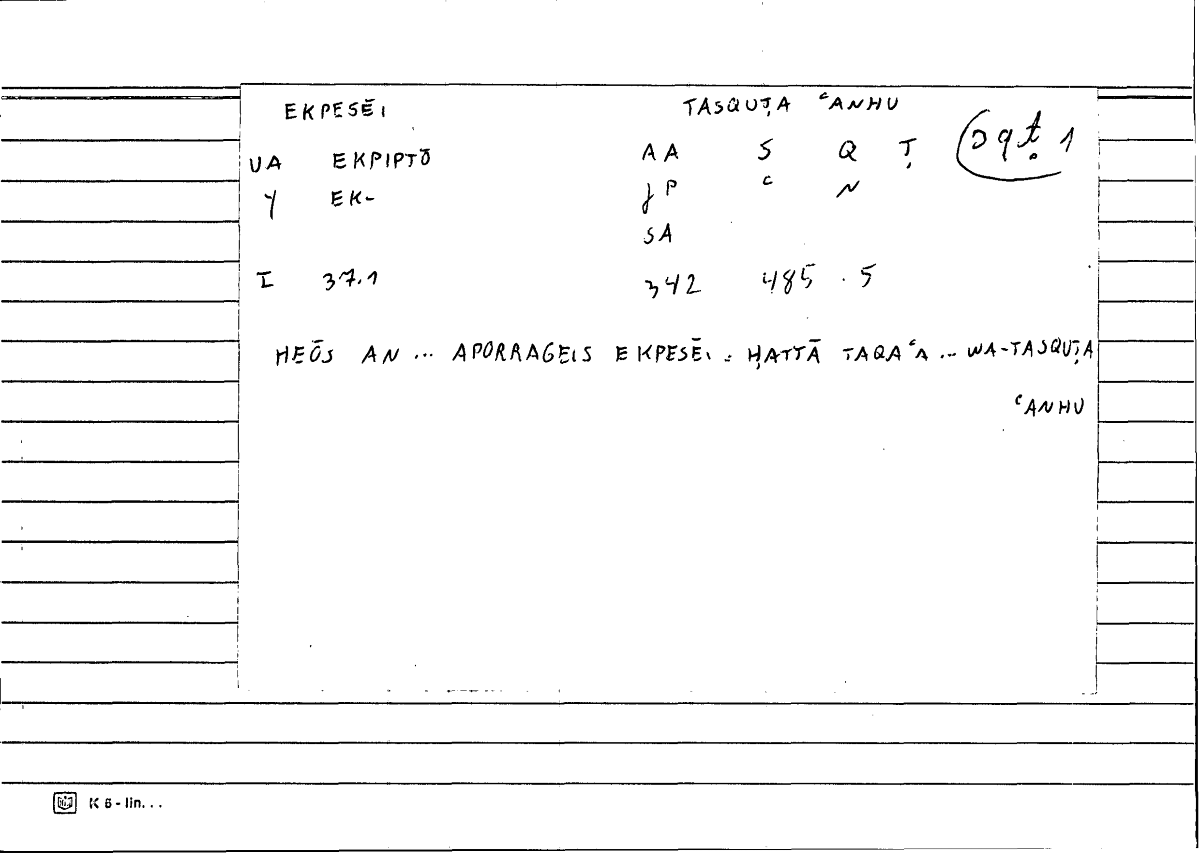 EKPESĒI TASQUṬA ʿANHU
UA EKPIPTŌ AA S Q Ṭ sqṭ 1
Y EK- P ʿ N
SA
I 37.1 342 485 . 5
HEŌS AN ... APORRAGEIS EKPESĒI : ḤATTĀ TAQAʿA ... WA-TASQUṬA
ʿANHU
K 6 - lin...